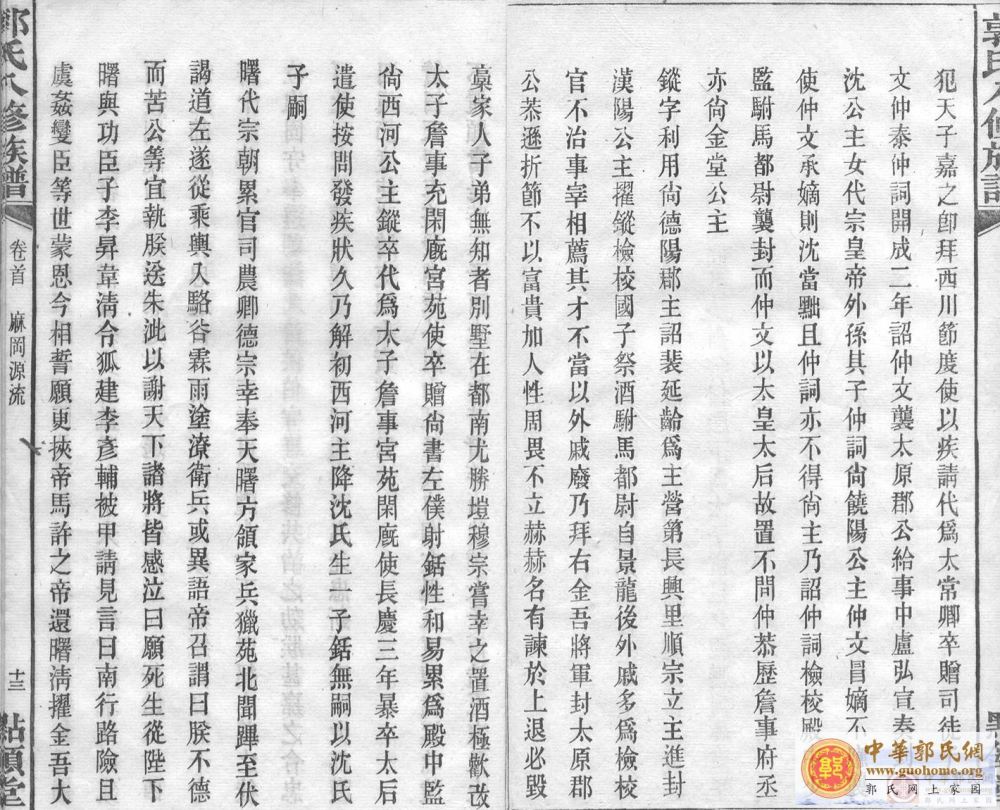 郭氏八修族譜
犯天子嘉之卽拜西川節度使以疾請代爲太常卿卒贈司徒
文仲泰仲詞開成二年詔仲文襲太原郡公給事中盧弘宣奏
沈公主女代宗皇帝外孫其子仲詞尙饒陽公主仲文冒嫡不
使仲文承嫡則沈當黜且仲詞亦不得尙主乃詔仲詞檢校殿
監駙馬都尉襲封而仲文以太皇太后故置不問仲恭歷詹事府丞
亦尙金堂公主
鏦字利用尙德陽郡主詔裴延齡爲主營第長興里順宗立主進封
漢陽公主擢鏦檢校國子祭酒駙馬都尉自景龍後外戚多爲檢校
官不治事宰相薦其才不當以外戚廢乃拜右金吾將軍封太原郡
公恭遜折節不以富貴加人性周畏不立赫赫名有諫於上退必毀
藁家人子弟無知者別墅在都南尤勝塏穆宗嘗幸之置酒極歡改
太子詹事充閑廐宮苑使卒贈尙書左僕射銛性和易累爲殿中監
尙西河公主鏦卒代爲太子詹事宮苑閑廐使長慶三年暴卒太后
遣使按問發疾狀久乃解初西河主降沈氏生一子銛無嗣以沈氏
子嗣
曙代宗朝累官司農卿德宗幸奉天曙方領家兵獵苑北聞蹕至伏
謁道左遂從乘輿入駱谷霖雨塗潦衛兵或異語帝召謂曰朕不德
而苦公等宜執朕送朱泚以謝天下諸將皆感泣曰願死生從陛下
曙與功臣子李昇韋淸令狐建李彥輔被甲請見言曰南行路險且
虞姦變臣等世蒙恩今相誓願更挾帝馬許之帝還曙淸擢金吾大
郭氏八修族譜
卷首 麻岡源流
十三
點頷堂
郭
中華郭氏網
www.guohome.org
郭氏網上家園